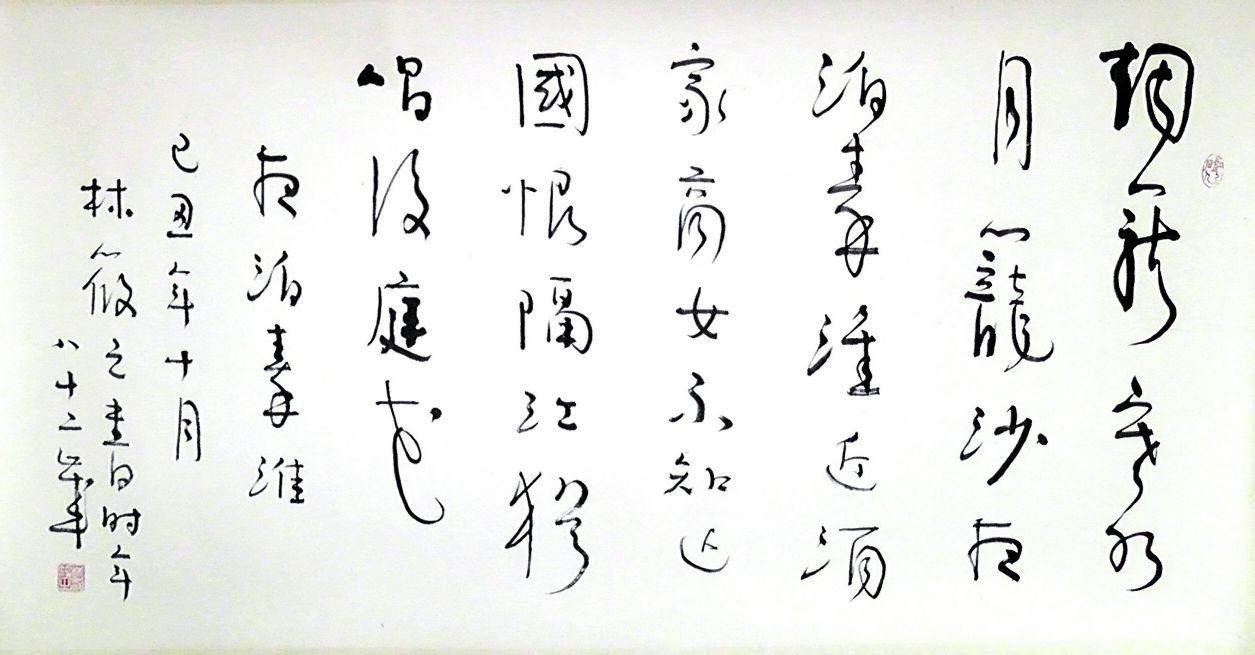 烟籠寒水
月籠沙夜
泊秦淮近酒
家商女不知亡
國恨隔江猶
唱後庭花
夜泊秦淮
己丑年十月
林筱之書时年
八十二歲